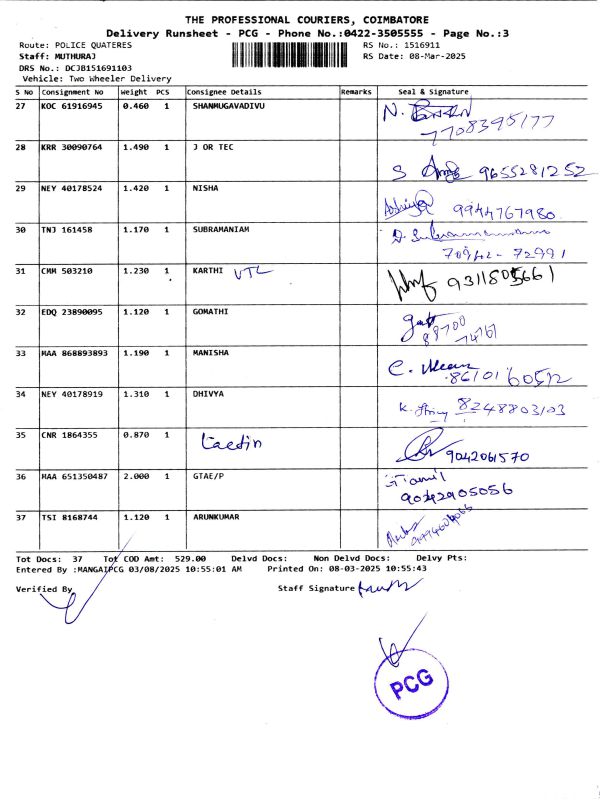 THE PROFESSIONAL COURIERS, COIMBATORE
Delivery Runsheet - PCG - Phone No.:0422-3505555 - Page No.:3
Route: POLICE QUATERES RS No.: 1516911
Staff: MUTHURAJ RS Date: 08-Mar-2025
DRS No.: DCJB151691103
Vehicle: Two Wheeler Delivery
S No Consignment No Weight PCS Consignee Details Remarks Seal & Signature
27 KOC 61916945 0.460 1 SHANMUGAVADIVU N.
7708395177
28 KRR 30090764 1.490 1 J OR TEC S 9655281252
29 NEY 40178524 1.420 1 NISHA 9944767980
30 TNJ 161458 1.170 1 SUBRAMANIAM
70942-72991
31 CMM 503210 1.230 1 KARTHI VTL 9311805661
32 EDQ 23890095 1.120 1 GOMATHI
88700
74761
33 MAA 868893893 1.190 1 MANISHA C.
8610160512
34 NEY 40178919 1.310 1 DHIVYA K. 8248803103
35 CNR 1864355 0.870 1 9042061570
36 MAA 651350487 2.000 1 GTAE/P
90422905056
37 TSI 8168744 1.120 1 ARUNKUMAR
Tot Docs: 37 Tot COD Amt: 529.00 Delvd Docs: Non Delvd Docs: Delvy Pts:
Entered By :MANGAIPCG 03/08/2025 10:55:01 AM Printed On: 08-03-2025 10:55:43
Verified By Staff Signature
PCG